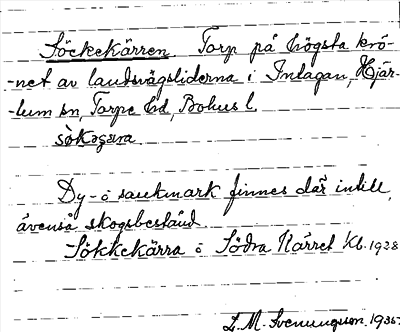 Söckekärren Torp på högsta krö-
-net av landsvägsliderna i Inlagan, Hjär-
-tum sn, Torpe hd, Bohus l.
Dy- o sankmark finnes där intill,
ävenså skogsbestånd.
Sökkekärra i Södra Kärret Kb. 1928
L. M. Svenungson 1935